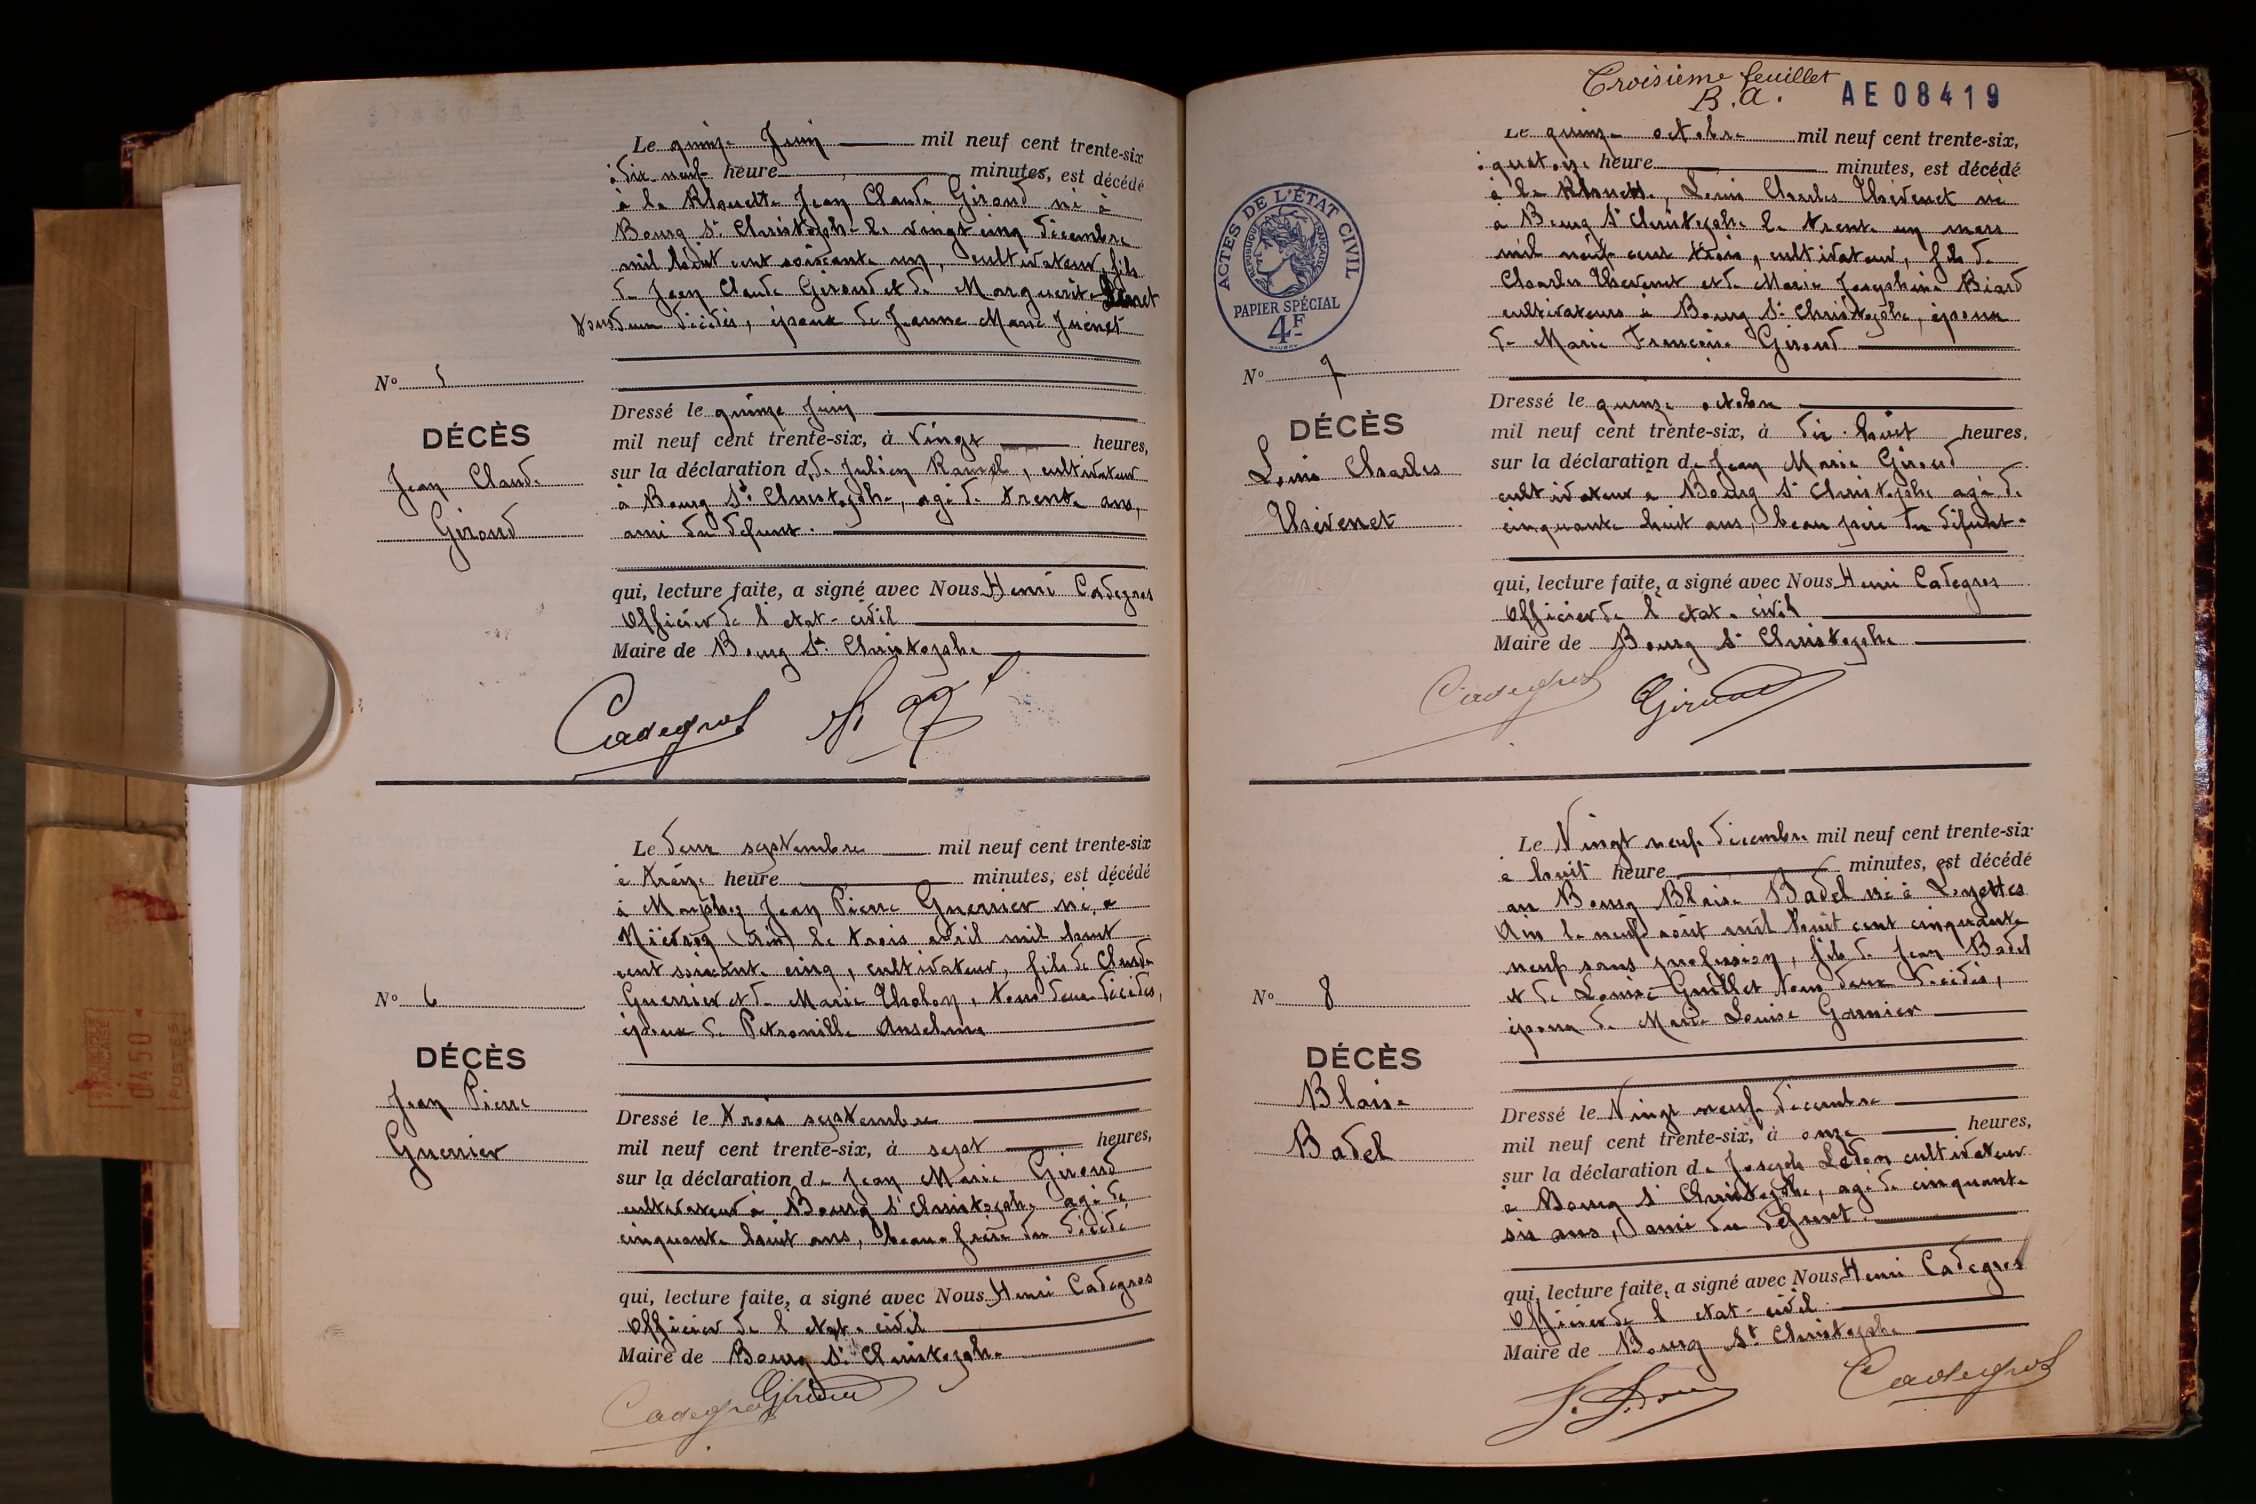 Le quinze Juin mil neuf cent trente-six
à dix-neuf heure minutes, est décédé
à la Jean Claude Giroud né à
Bourg St Christophe le vingt cinq décembre
mil huit cent soixante un, cultivateur, fils
de Jean Claude Giroud et de Marguerite
tous deux décédés, époux de Jeanne Marie Juénet
No 5
DÉCÈS
Jean Claude
Giroud
Dressé le quinze Juin
mil neuf cent trente-six, à vingt heures,
sur la déclaration d de Julien Ramel, cultivateur
à Bourg St Christophe, agé de trente ans,
ami du défunt.
qui, lecture faite, a signé avec Nous Henri Cadegros
Officier de l'etat-civil
Maire de Bourg St Christophe
Cadegros
Le deux septembre mil neuf cent trente-six
à treize heure minutes, est décédé
à Jean Pierre Guerrier né à
(Ain) le trois avril mil huit
cent soixante cinq, cultivateur, fils de Claude
Guerrier et de Marie Tholon, tous deux décédés,
époux de Petronille Anselme
No 6
DÉCÈS
Jean Pierre
Guerrier
Dressé le trois septembre
mil neuf cent trente-six, à sept heures,
sur la déclaration de Jean Marie Giroud
cultivateur à Bourg St Christophe agé de
cinquante huit ans, beau-frère du décédé
qui, lecture faite, a signé avec Nous Henri Cadegros
Officier de l'etat-civil
Maire de Bourg St Christophe
Cadegros Giroud
Troisième feuillet
B.A.
AE08419
Le quinze octobre mil neuf cent trente-six,
à quatorze heure minutes, est décédé
à la Louis Charles Thévenet né
à Bourg St Christophe le trente un mars
mil neuf cent trois, cultivateur, fils de
Charles Thevenet et de Marie Josephine Biard
cultivateurs à Bourg St Christophe, époux
de Marie Françoise Giroud
ACTES DE L'ÉTAT CIVIL
RÉPUBLIQUE FRANÇAISE
PAPIER SPÉCIAL
4F
No 7
DÉCÈS
Louis Charles
Thévenet
Dressé le quinze octobre
mil neuf cent trente-six, à dix-huit heures,
sur la déclaration de Jean Marie Giroud
cultivateur à Bourg St Christophe agé de
cinquante huit ans, beau père du défunt.
qui, lecture faite, a signé avec Nous Henri Cadegros
Officier de l'etat-civil
Maire de Bourg St Christophe
Cadegros Giroud
Le Vingt neuf décembre mil neuf cent trente-six
à huit heure minutes, est décédé
au Bourg Blaise Badel né à Loyettes
Ain le neuf août mil huit cent cinquante
neuf sans profession, fils de Jean Badel
et de Louise Guillet tous deux décédés,
époux de Marie Louise Garnier
No 8
DÉCÈS
Blaise
Badel
Dressé le Vingt neuf décembre
mil neuf cent trente-six, à onze heures,
sur la déclaration de Joseph cultivateur
à Bourg St Christophe, agé de cinquante
six ans, ami du défunt.
qui, lecture faite, a signé avec Nous Henri Cadegros
Officier de l'etat-civil
Maire de Bourg St Christophe
Cadegros
0450
POSTES